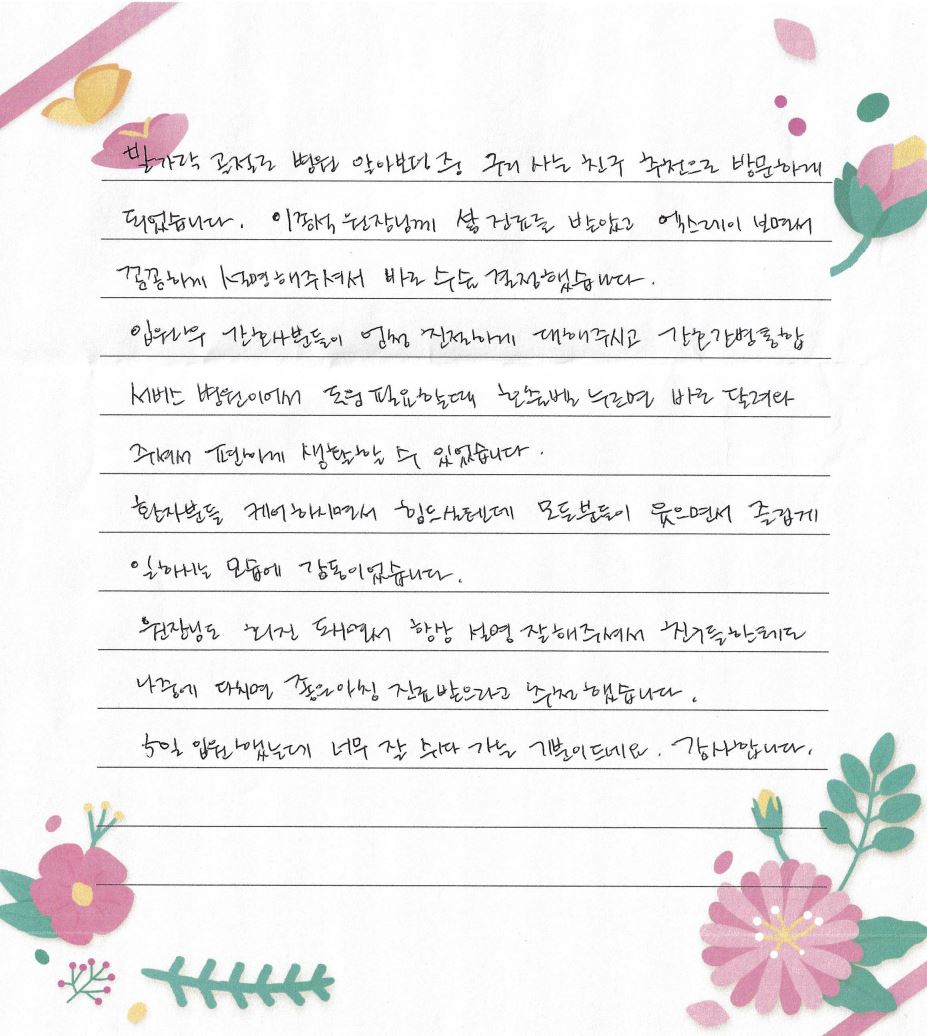 발가락 골절로 병원 알아보던 중 구리 사는 친구 추천으로 방문하게
되었습니다. 이종석 원장님께 첫 진료를 받았고 엑스레이 보면서
꼼꼼하게 설명해주셔서 바로 수술 결정했습니다.
입원나우 간호사분들이 엄청 친절하게 대해주시고 간호간병통합
서비스 병원이어서 도움 필요할때 호출벨 누르면 바로 달려와
주셔서 편하게 생활할 수 있었습니다.
환자분들 케어하시면서 힘드실텐데 모든분들이 웃으면서 즐겁게
일하시는 모습에 감동이었습니다.
원장님도 회진 도시면서 항상 설명 잘해주셔서 친구들한테도
나중에 다치면 좋은아침 진료받으라고 추천했습니다.
5일 입원했는데 너무 잘 쉬다 가는 기분이드네요. 감사합니다.